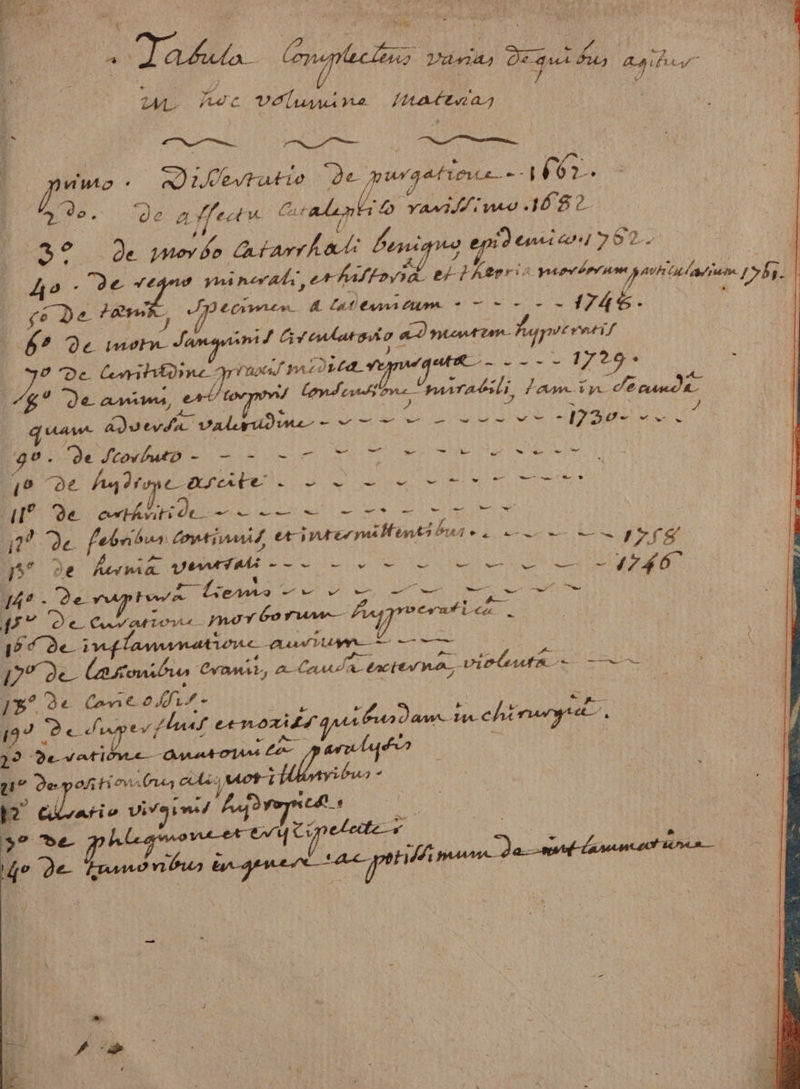 Tabula Complectens varias de quibus agitur
in hoc volumine materias
primo. Dissertatio de purgatione -- 1662.
2do. De affectu Cataleptico rarissimo 1682
3º De morbo Catarrhali benigno epidemico 1762.
4º - De regno minerali, et historia et theoria morborum particularium 1761.
5º De tamk, Specimen Academicum - - - - - 1746.
6º De motu Sanguinis Circulatorio ad mentem hypocratis
7º De Consuetudine praxis medica - - - - - 1729.
8º De animi, et corporis Consensione mirabili, tam in Secunda
quam adversa Valetudine - - - - - - - - - 1730 - - -
9º. De Scorbuto - - - - - - - - - - -
10 De hydrope ascite - - - - - - - - - -
11º De arthritide - - - - - - - - - -
12º De febribus Continuis, et intermittentibus - - - - - 1758
13º De hernia ventrali - - - - - - - - - - - 1746
14º. De ruptura Lienis - - - - - - - - -
15º De Curatione morborum hypocratica -
16º De inflammatione aurium - - - -
17º De Laesionibus Cranii, a Causa externa, violenta - - - -
18º De Carie ossis -
19º De Superfluis et noxiis quibusdam in chirurgia.
20 De ratione anatomica paralyseos
21º De positionibus
22º virginis hydropicae
23º De phlegmone et erysipelate
24º De tumoribus in genere ac potissimum de inflammatione